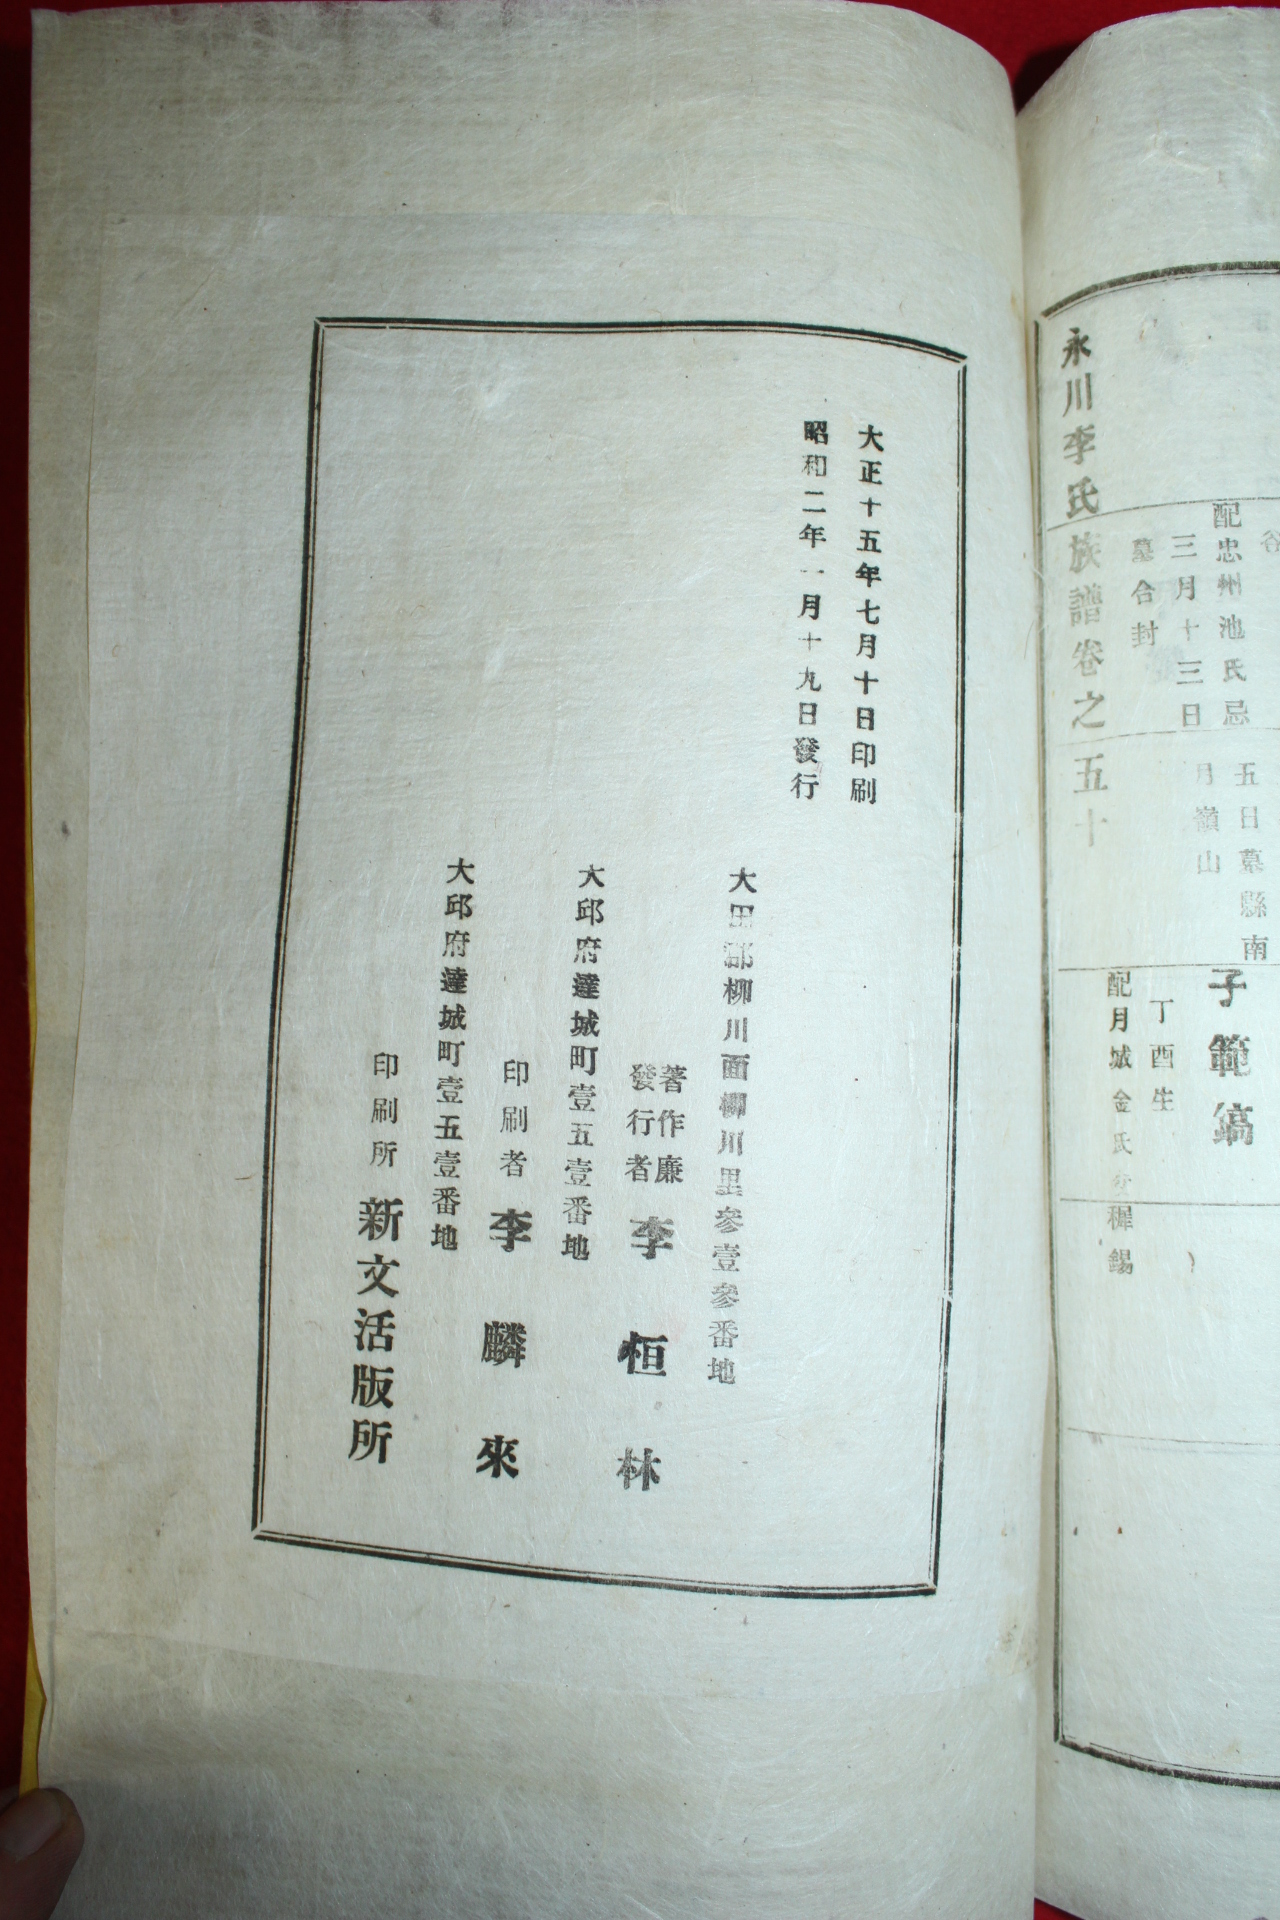 五日墓縣南
月嶺山
子範鎬
丁酉生
配月城金氏
配忠州池氏忌
三月十三日
墓合封
永川李氏族譜卷之五十
大正十五年七月十日印刷
昭和二年一月十九日發行
大田郡柳川面柳川里參壹參番地
著作廉
發行者 李恒林
大邱府達城町壹五壹番地
印刷者 李麟來
大邱府達城町壹五壹番地
印刷所 新文活版所